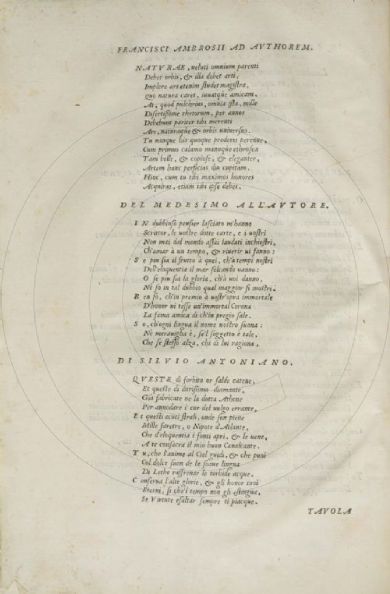 FRANCISCI AMBROSII AD AVTHOREM.
NATVRAE, veluti omnium parenti
Debet orbis, & illa debet arti,
Implere artatenim studet magistra,
Quo natura caret, iuuatque amicam.
At, quod pulchrius, omnia ista, mille
Disertissime rhetorum, per annos
Debebunt pariter tibi merenti
Ars, naturaque & orbis vniuersus.
Tu nanque his quoque proderis perenne,
Cum primus calamo manuque
Tam belle, & copiose, & eleganter,
Artem hanc perficias
Hinc, cum tu tibi maximos honores
Acquiras, etiam tibi ipse debes.
DEL MEDESIMO ALL'AVTORE.
IN dubbioso pensier lasciato m'hanno
Scrittor, le vostre dotte carte, e i vostri
Non mai dal mondo assai laudati inchiostri,
Ch'amar à un tempo, & riuerir vi fanno:
Se piu sia il frutto à quei, ch'n tempi nostri
Dell'eloquentia il mar solcando vanno:
O se piu sia la gloria, ch'à voi danno,
Ne so in tal dubbio qual maggior si mostri.
Ben so, ch'in premio à vostr'opra immortale
D'honor vi tesse un'immortal Corona
La fama amica di ch'in pregio sale.
So, ch'ogni lingua il nome vostro suona:
Ne merauiglia è, se'l soggetto è tale,
Che se stesso alza, chi di lui ragiona.
DI SILVIO ANTONIANO.
QVESTE di forbito or salde catene,
Et queste di durissimo diamante,
Già fabricate ne la dotta Athene
Per annodare i cor del volgo errante,
Et questi acuti strali, onde sen viene
Mille saette, o Nipote d'Atlante,
Che d'eloquentia i fonti apri, & le vene,
A te consacra il mio buon Caualcante.
Tu, che l'animo al Ciel guidi, & che puoi
Col dolce suon de le facone lingua
Di Lethe raffrenar le torbide acque,
Conserua l'alte glorie, & gli honor suoi
Eterni, si che'l tempo non gli estingua,
Se Virtute esaltar sempre ti piacque.
TAVOLA